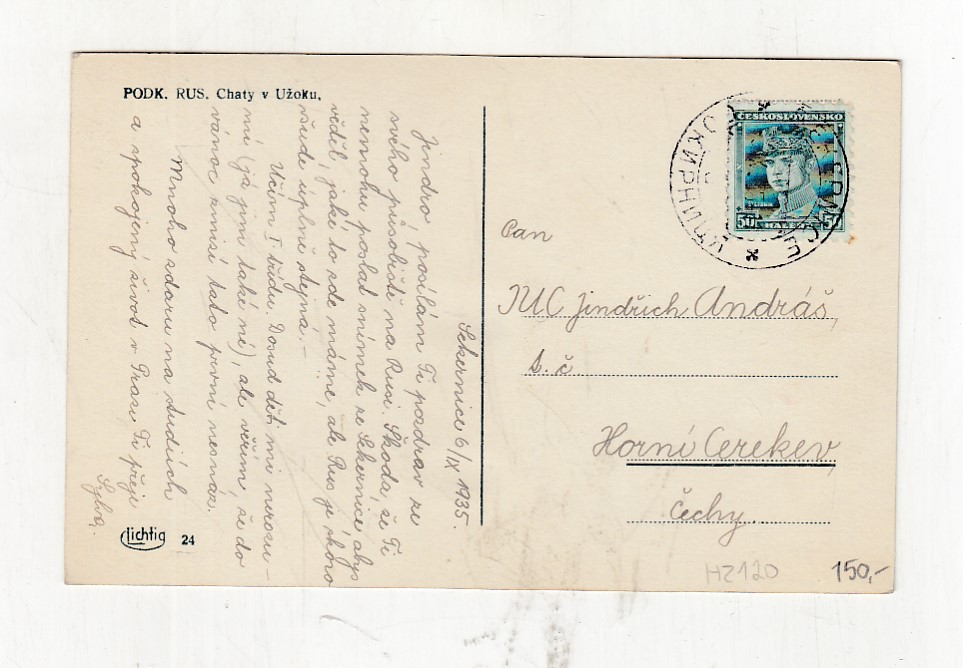 PODK. RUS. Chaty v Užoku.
Sekernice 6/IX 1935.
Jindro, posílám Ti pozdrav ze
svého působiště na Rusi. Škoda, že Ti
nemohu poslat snímek ze Sekernice, abys
věděl, jaké to zde máme, ale Rus je skoro
všude úplně stejná. –
Učím I. třídu. Dosud děti mi nerozu-
mí (já jim také né), ale věřím, že do
vánoc zmizí tato první nesnáz.
Mnoho zdaru na studiích
a spokojený život v Praze Ti přeje
Sylva.
Lichtig 24
ČESKOSLOVENSKO
50
50
Pan
JUC. Jindřich Andráš,
č.
Horní Cerekev
Čechy.
HZ120
150,-